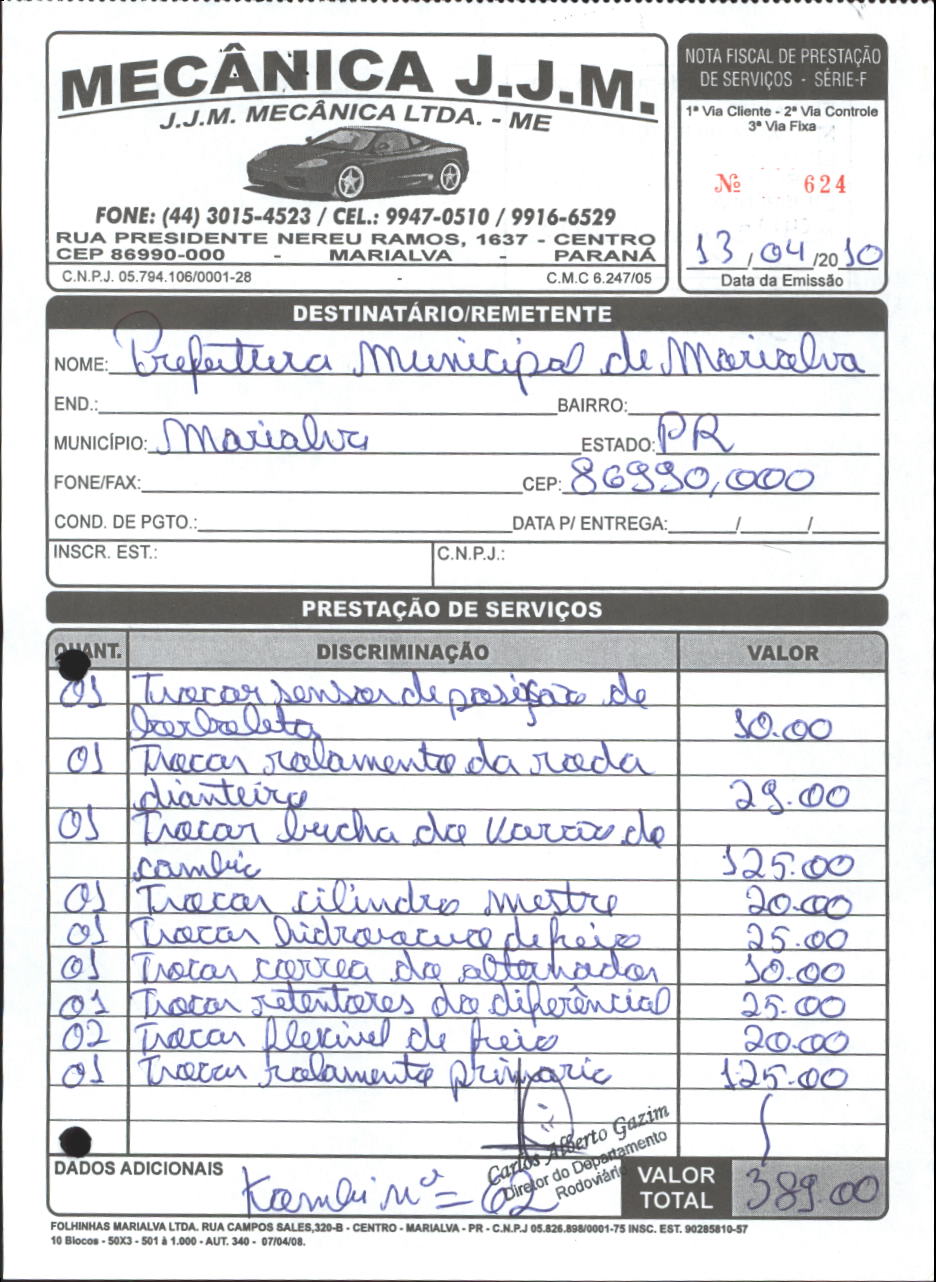 MECÂNICA J.J.M.
J.J.M. MECÂNICA LTDA. - ME
FONE: (44) 3015-4523 / CEL.: 9947-0510 / 9916-6529
RUA PRESIDENTE NEREU RAMOS, 1637 - CENTRO
CEP 86990-000 - MARIALVA - PARANÁ
C.N.P.J. 05.794.106/0001-28 - C.M.C 6.247/05
NOTA FISCAL DE PRESTAÇÃO
DE SERVIÇOS - SÉRIE-F
1ª Via Cliente - 2ª Via Controle
3ª Via Fixa
Nº 624
13/04/2010
Data da Emissão
DESTINATÁRIO/REMETENTE
NOME: Prefeitura Municipal de Marialva
END.: BAIRRO:
MUNICÍPIO: Marialva ESTADO: PR
FONE/FAX: CEP: 86990,000
COND. DE PGTO.: DATA P/ ENTREGA: / /
INSCR. EST.: C.N.P.J.:
PRESTAÇÃO DE SERVIÇOS
QUANT. DISCRIMINAÇÃO VALOR
01 Trocar sensor de posição de
borboleta 10.00
01 Trocar rolamento da roda
dianteiro 29.00
01 Trocar bucha do varão de
cambio 125.00
01 Trocar cilindro mestre 20.00
01 Trocar hidrovacuo de freio 25.00
01 Trocar correa do alternador 10.00
01 Trocar retentores do diferêncial 25.00
02 Trocar flexivel de freio 20.00
01 Trocar rolamento primario 125.00
Carlos Alberto Gazim
Diretor do Departamento
Rodoviário
DADOS ADICIONAIS
Kombi nº = 62
VALOR
TOTAL 389.00
FOLHINHAS MARIALVA LTDA. RUA CAMPOS SALES,320-B - CENTRO - MARIALVA - PR - C.N.P.J 05.826.898/0001-75 INSC. EST. 90285810-57
10 Blocos - 50X3 - 501 à 1.000 - AUT. 340 - 07/04/08.